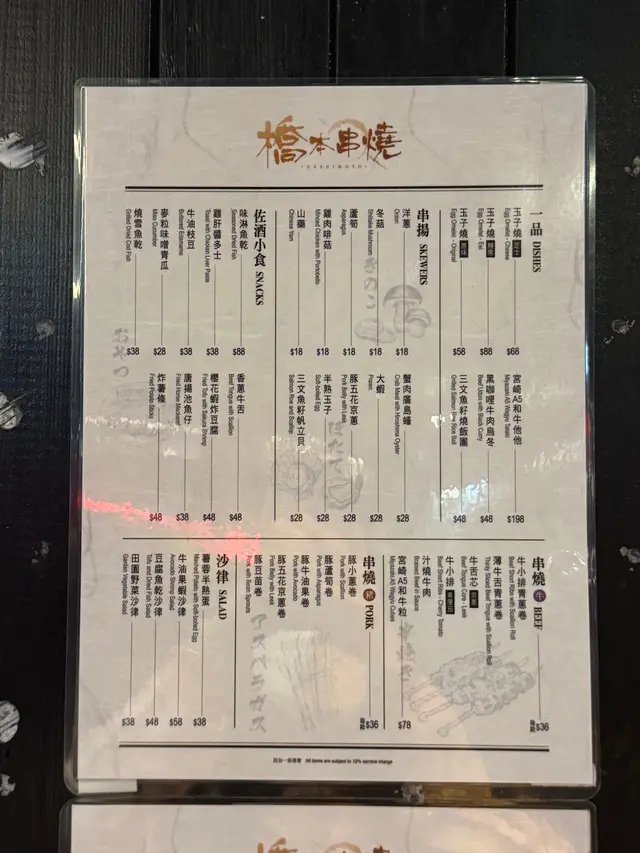 橋本串燒
HASHIMOTO
一品 DISHES
玉子燒 芝士 $68
Egg Omelet - Cheese
玉子燒 鰻魚 $88
Egg Omelet - Eel
玉子燒 原味 $58
Egg Omelet - Original
宮崎A5和牛他他 $198
Miyazaki A5 Wagyu Tataki
黑咖哩牛肉烏冬 $48
Beef Udon with Black Curry
三文魚籽燒飯團 $48
Grilled Salmon Roe Rice Ball
串揚 SKEWERS
洋蔥 $18
Onion
冬菇 $18
Shiitake Mushroom
蘆筍 $18
Asparagus
雞肉啡菇 $18
Minced Chicken with Portobello
山藥 $18
Chinese Yam
蟹肉廣島蠔 $28
Crab Meat with Hiroshima Oyster
大蝦 $28
Prawn
豚五花京蔥 $28
Pork Belly with Leek
半熟玉子 $28
Soft-boiled Egg
三文魚籽帆立貝 $28
Salmon Roe and Scallop
きのこ
佐酒小食 SNACKS
味淋魚乾 $88
Seasoned Dried Fish
雞肝醬多士 $38
Toast with Chicken Liver Paste
牛油枝豆 $38
Buttered Edamame
麥粒味噌青瓜 $28
Miso Cucumber
燒雪魚乾 $38
Grilled Dried Cod Fish
香蔥牛舌 $48
Beef Tongue with Scallion
櫻花蝦炸豆腐 $48
Fried Tofu with Sakura Shrimp
唐揚池魚仔 $38
Fried Horse Mackerel
炸薯條 $48
Fried Potato Sticks
おやつ
串燒 牛 BEEF
每串 $36
牛小排青蔥卷
Beef Short Ribs with Scallion Roll
薄牛舌青蔥卷
Thinly Sliced Beef Tongue with Scallion Roll
牛舌芯
Beef Tongue Core - Leek
牛小排
Beef Short Ribs - Cherry Tomato
汁燒牛肉
Braised Beef in Sauce
宮崎A5和牛粒 $78
Miyazaki A5 Wagyu Cubes
串燒 豬 PORK
每串 $36
豚小蔥卷
Pork with Scallion
豚蘆筍卷
Pork with Asparagus
豚牛油果卷
Pork with Avocado
豚五花京蔥卷
Pork Belly with Leek
豚豆苗卷
Pork with Bean Sprouts
アスパラガス
沙律 SALAD
薯蓉半熟蛋 $38
Mashed Potato with Soft-boiled Egg
牛油果蝦沙律 $58
Avocado Shrimp Salad
豆腐魚乾沙律 $48
Tofu and Dried Fish Salad
田園野菜沙律 $38
Garden Vegetable Salad
另加一服務費 All items are subject to 10% service charge